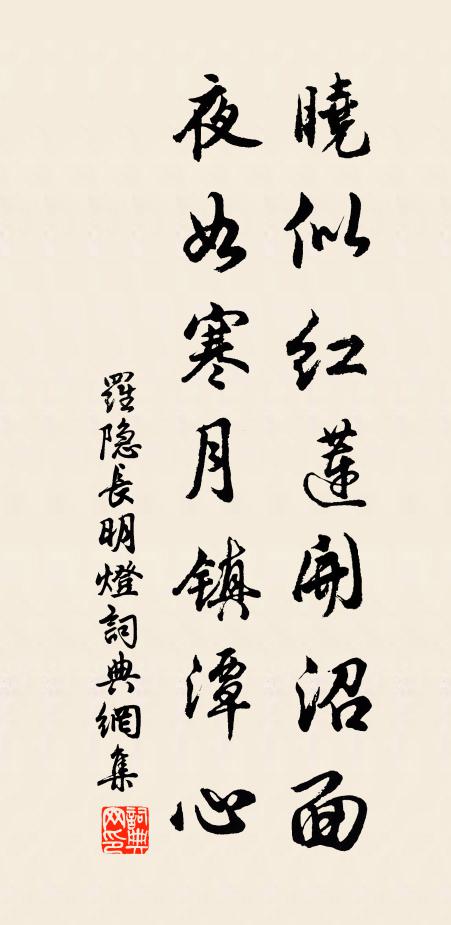 曉似红蓮開沼面
夜如寒月镇潭心
羅隐長明燈詞典網集
詞典网印